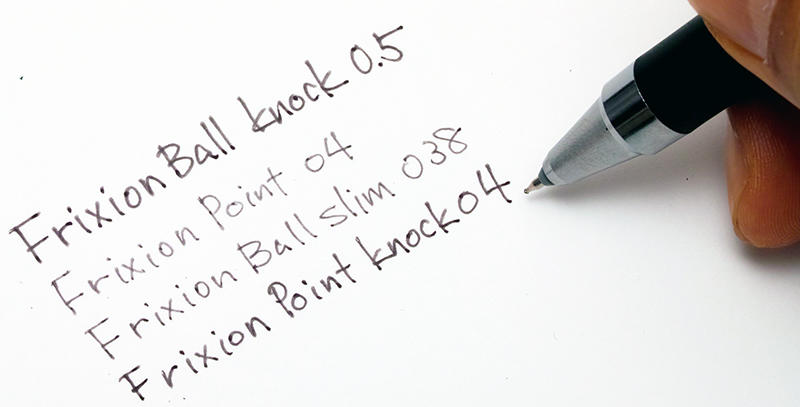 Frixion Ball knock 0.5
Frixion Point 04
Frixion Ball slim 038
Frixion Point knock 04